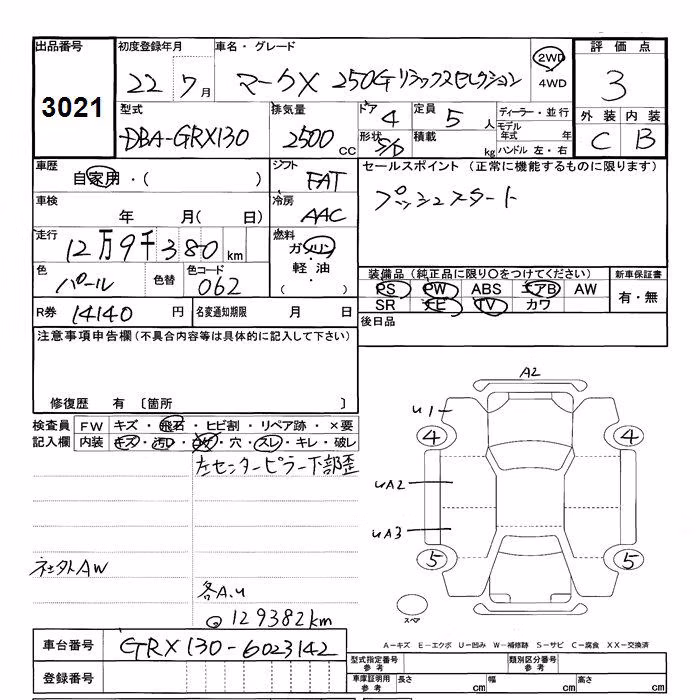 出品番号 初度登録年月 車名・グレード 評価点
3021 22 7月 マークX 250G リラックスセレクション 2WD 4WD 3
型式 排気量 ドア 4 定員 5人 ディーラー・並行 外装 内装
DBA-GRX130 2500 CC 形状 S/D 積載 kg モデル年式 年 ハンドル 左・右 C B
車歴 自家用・( ) シフト FAT セールスポイント (正常に機能するものに限ります)
車検 年 月( 日) 冷房 AAC プッシュスタート
走行 12万9千380km 燃料 ガソリン・軽油・( )
色 パール 色替 色コード 062 装備品(純正品に限り○をつけてください) 新車保証書
PS PW ABS エアB AW 有・無
SR ナビ TV カワ
R券 14140円 名変通知期限 月 日 後日品
注意事項申告欄(不具合内容等は具体的に記入して下さい)
修復歴 有 〔箇所 〕
検査員記入欄 FW キズ・飛石・ヒビ割・リペア跡・×要
内装 キズ・汚レ・コゲ・穴・スレ・キレ・破レ
左センターピラー下部歪
社外AW
各A.U
129382km
A2
U1
4 4
UA2
UA3
5 5
スペア
A-キズ E-エクボ U-凹み W-補修跡 S-サビ C-腐食 XX-交換済
車台番号 GRX130-6023142
型式指定番号 参考 類別区分番号 参考
登録番号 車庫証明用 参考 長さ cm 幅 cm 高さ cm